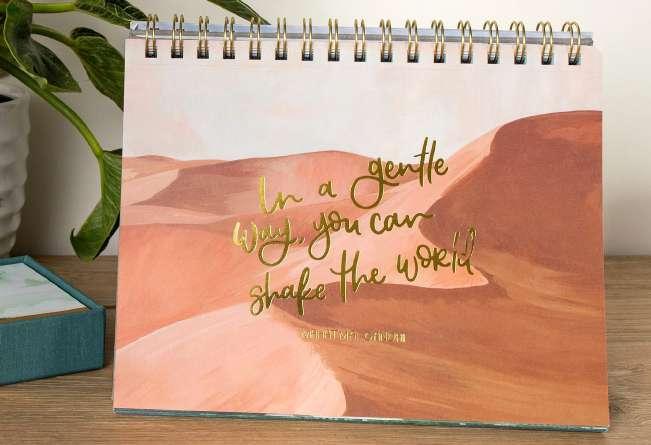 In a gentle
Way, you can
shake the world
MAHATMA GANDHI